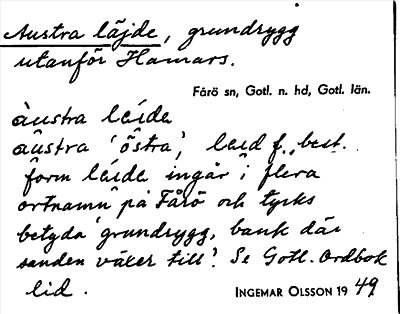 Austra läjde, grundrygg
utanför Hamars.
Fårö sn, Gotl. n. hd, Gotl. län.
àustra leida
au̯stra 'östra', leid f., best.
form léida ingår i flera
ortnamn på Fårö och tycks
betyda 'grundrygg, bank där
sanden växer till'. Se Gotl. Ordbok
lid.
INGEMAR OLSSON 1949